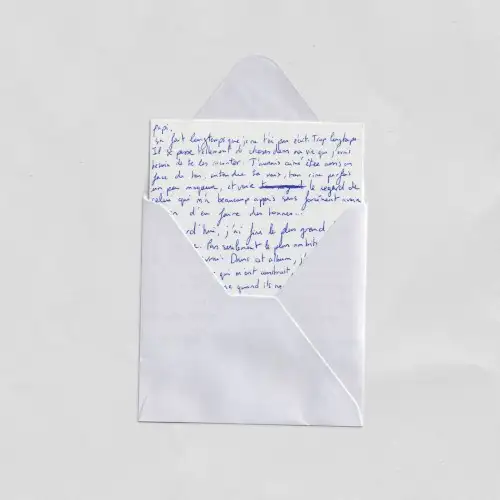 Papi,
Ça fait longtemps que je ne t'ai pas écrit. Trop longtemps.
Il se passe tellement de choses dans ma vie que j'aurai
besoin de te les raconter. J'aurais aimé être assis en
face de toi, entendre ta voix, ton rire parfois
un peu moqueur, et voir le regard de
celui qui m'a beaucoup appris sans forcément avoir
d'en faire des tonnes...
j'ai fini le plus grand
Pas seulement le plus ambit
vrai. Dans cet album, j'
qui m'ont construit,
quand ils ne